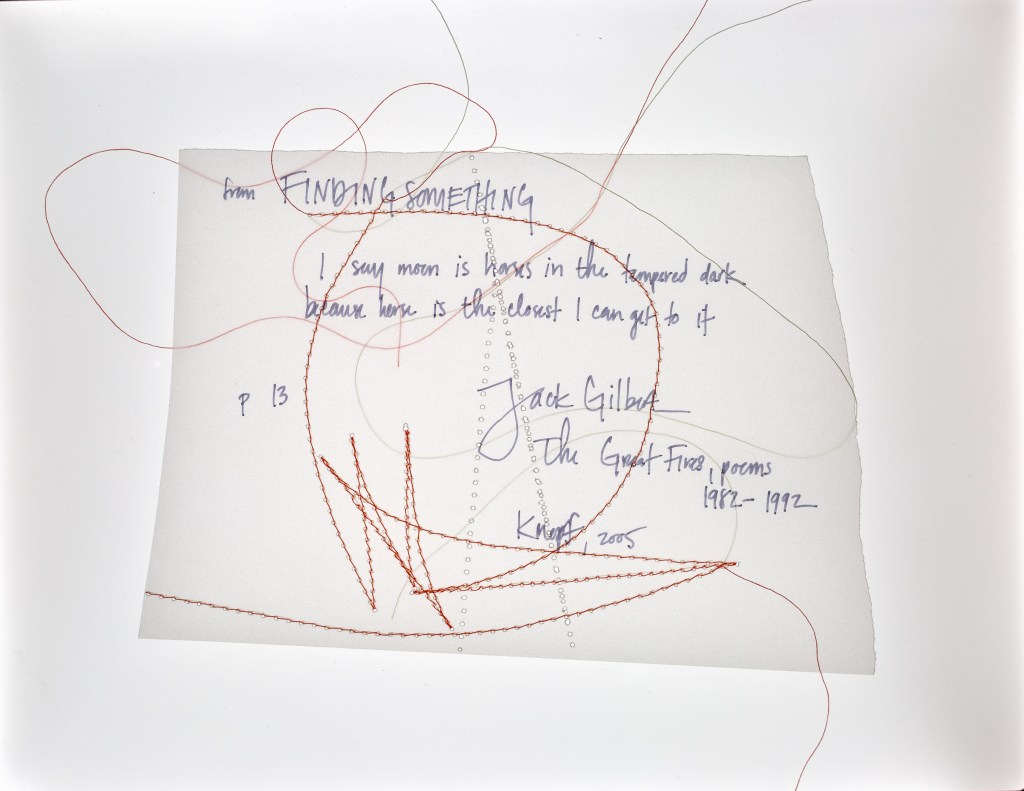 from FINDING SOMETHING
I say moon is horses in the tempered dark
because horse is the closest I can get to it
p 13
Jack Gilbert
The Great Fires, poems
1982-1992
Knopf, 2005